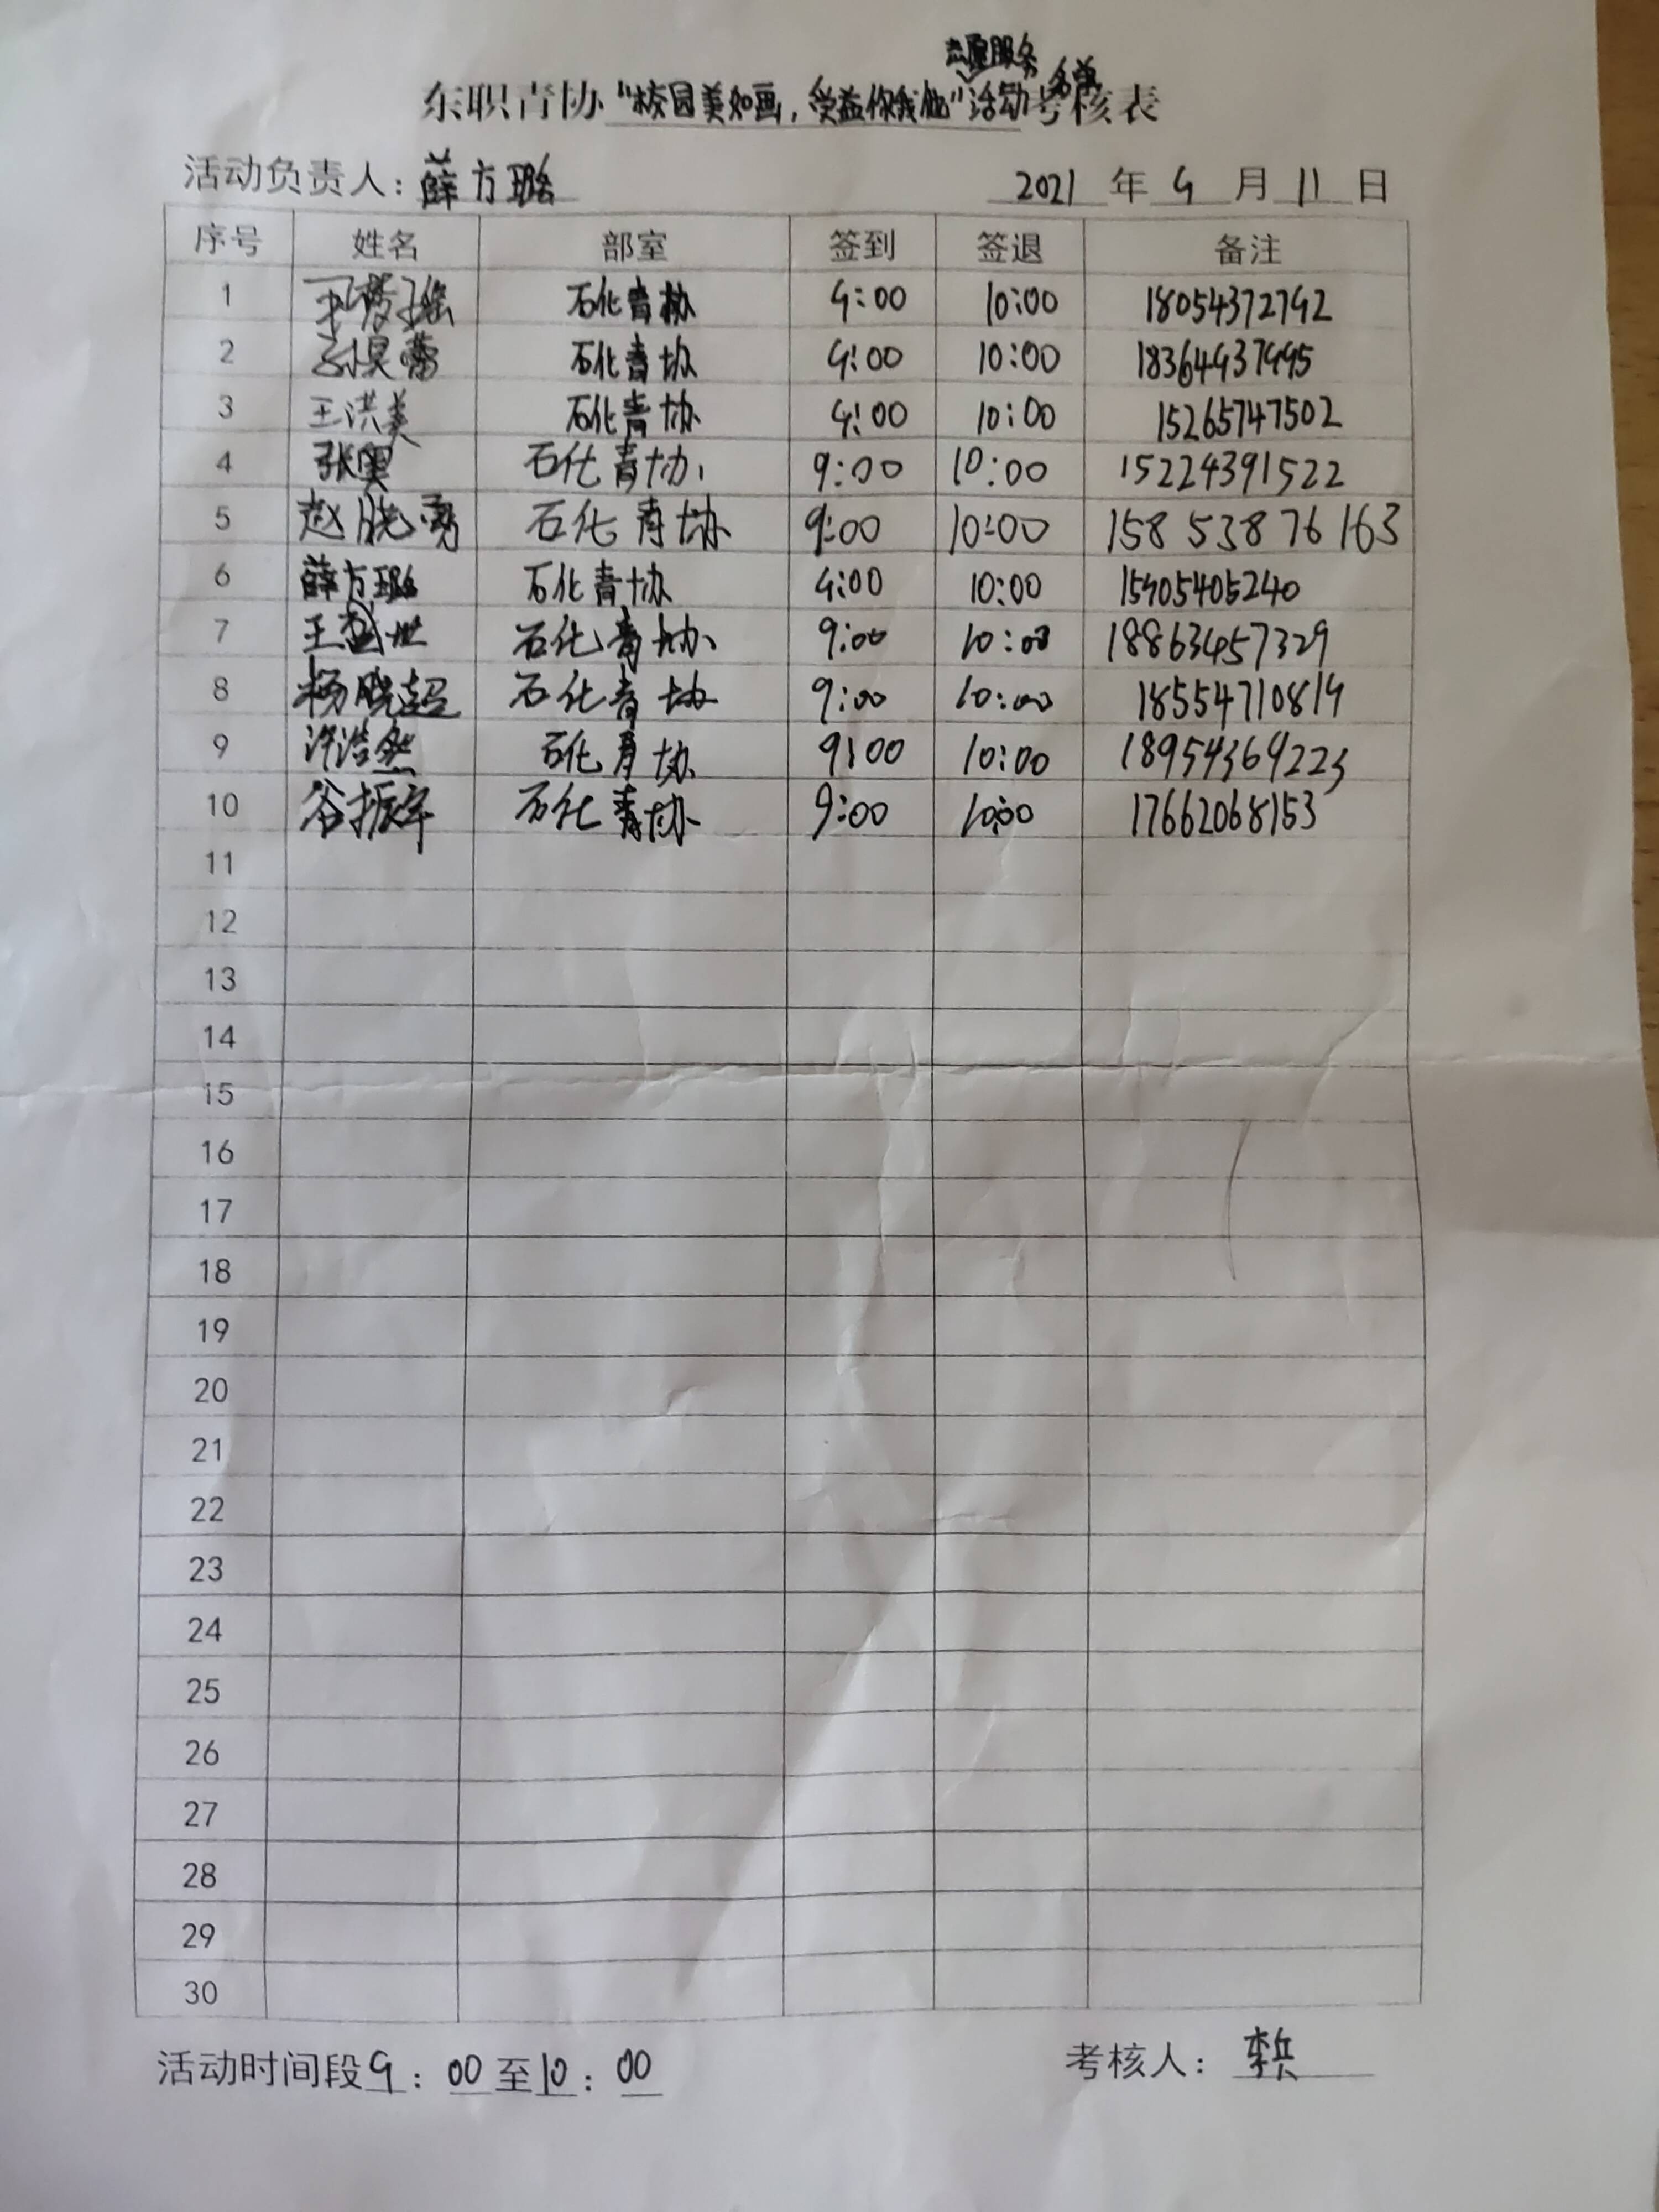 志愿服务 名单
东职青协"校园美如画，受益你我他"活动考核表
活动负责人：薛方璐 2021 年 9 月 11 日
序号 姓名 部室 签到 签退 备注
1 石化青协 9:00 10:00 18054372792
2 石化青协 9:00 10:00
3 王洪美 石化青协 9:00 10:00 15265747502
4 张奥 石化青协 9:00 10:00 15224391522
5 赵晓勇 石化青协 9:00 10:00 15853876163
6 薛方璐 石化青协 9:00 10:00 15905405240
7 王盛世 石化青协 9:00 10:00 18863457329
8 杨晓超 石化青协 9:00 10:00 18554710819
9 许浩然 石化青协 9:00 10:00 18954369223
10 谷振军 石化青协 9:00 10:00 17662068153
11
12
13
14
15
16
17
18
19
20
21
22
23
24
25
26
27
28
29
30
活动时间段9：00至10：00 考核人：